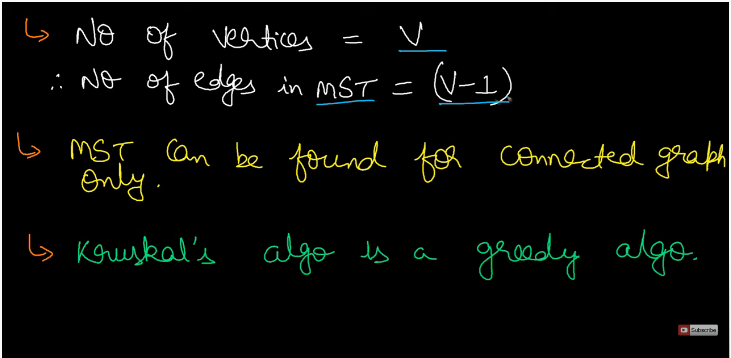 ↳ No of vertices = V
∴ No of edges in MST = (V-1)
↳ MST can be found for connected graph
only.
↳ Kruskal's algo is a greedy algo.
Subscribe